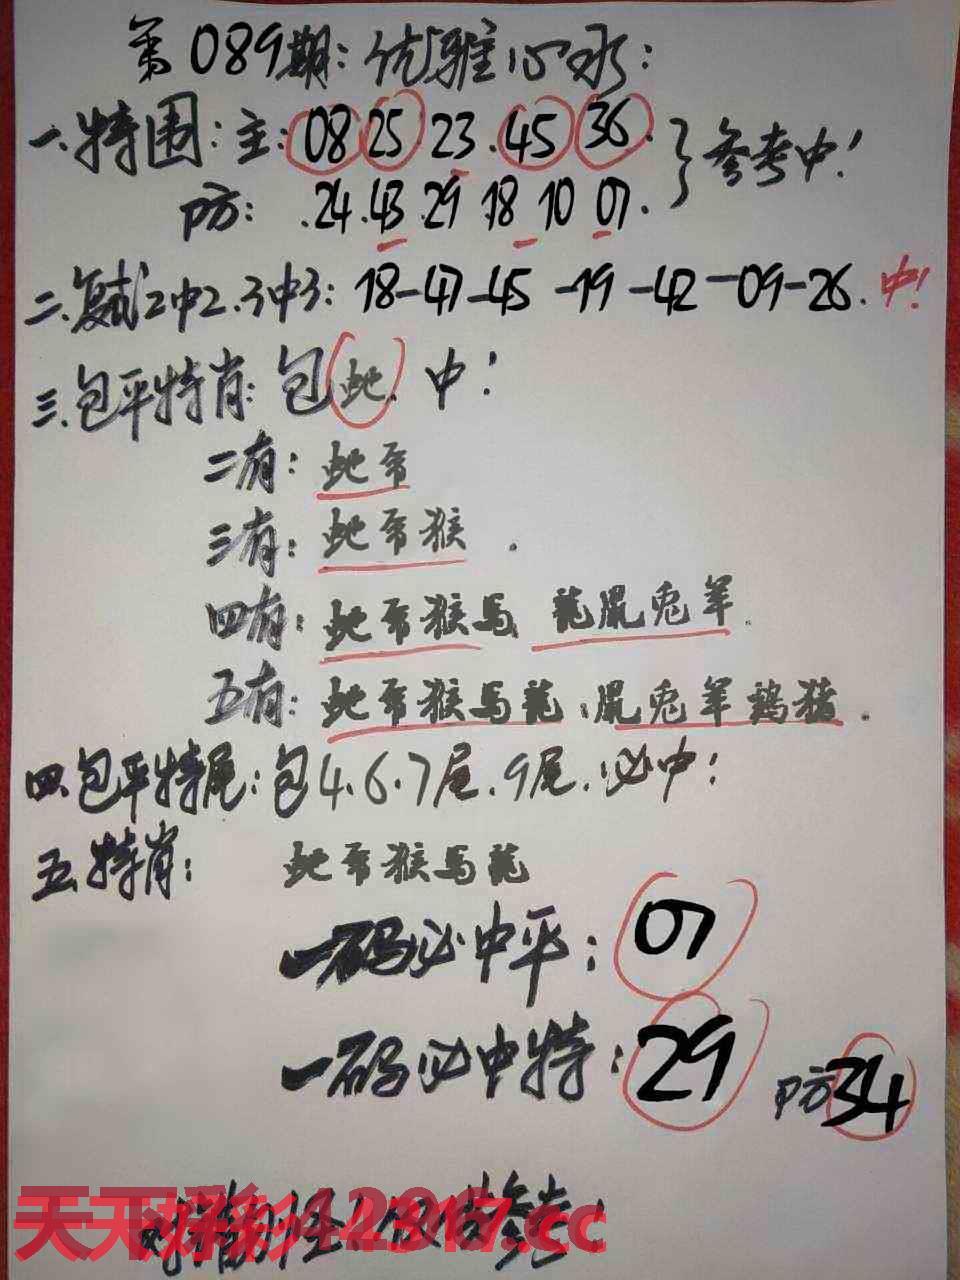 第089期:优雅心水:
一.特围:主:08 25 23.45 36.}参考中!
防:.24.43.29.18 10 07.
二.复试2中2.3中3:18-47-45-19-42-09-26.中!
三.包平特肖:包蛇.中!
二有:蛇帝
三有:蛇帝猴.
四有:蛇帝猴马 龙鼠兔羊.
五有:蛇帝猴马龙.鼠兔羊鸡猪.
四.包平特尾:包4.6.7尾.9尾.必中:
五.特肖:蛇帝猴马龙
一码必中平:07
一码必中特:29 防34
天天 .cc